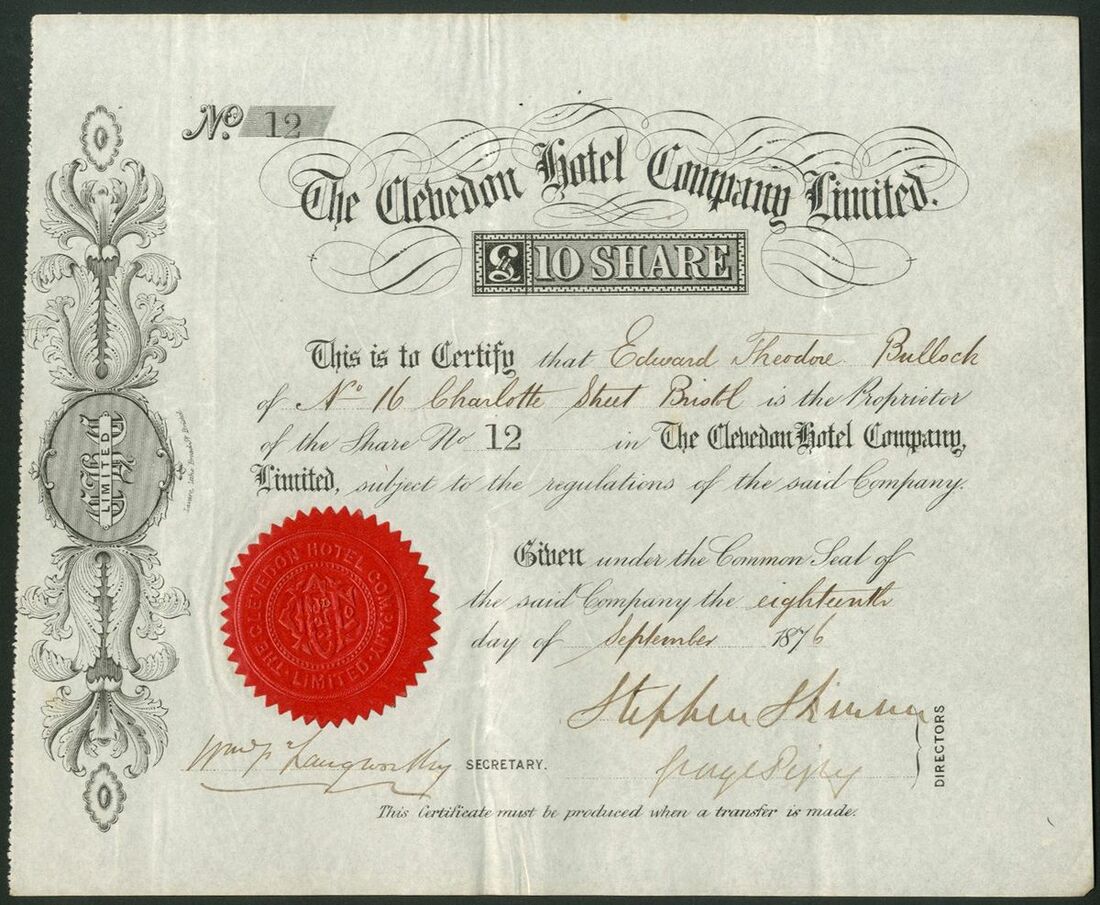 No. 12
The Clevedon Hotel Company Limited.
£10 SHARE
This is to Certify that Edward Theodore Bullock
of No 16 Charlotte Street Bristol is the Proprietor
of the Share No 12 in The Clevedon Hotel Company,
Limited, subject to the regulations of the said Company.
LIMITED
THE CLEVEDON HOTEL COMPANY LIMITED
Given under the Common Seal of
the said Company the eighteenth
day of September 1876
Stephen
Wm F Langworthy SECRETARY.
George
DIRECTORS
This Certificate must be produced when a transfer is made.